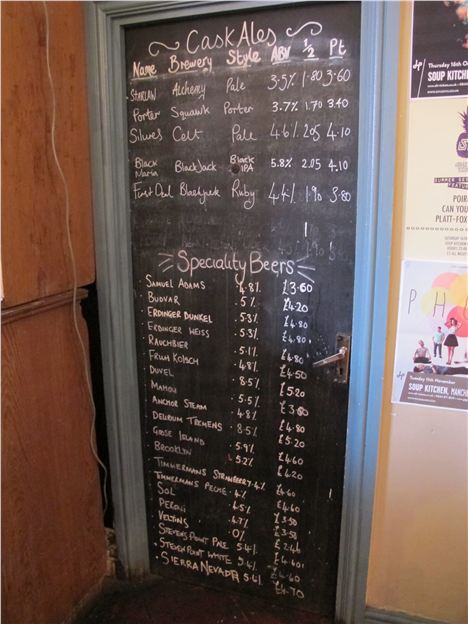 Cask Ales
Name Brewery Style ABV ½ Pt
Starlan Alchemy Pale 3.5% 1.80 3.60
Porter Squawk Porter 3.7% 1.70 3.40
Silures Celt Pale 4.6% 2.05 4.10
Black Maria BlackJack Black IPA 5.8% 2.05 4.10
First Deal Blackjack Ruby 4.4% 1.90 3.80
Speciality Beers
Samuel Adams 4.8% £3.60
Budvar 5% £4.20
Erdinger Dunkel 5.3% £4.80
Erdinger Weiss 5.3% £4.80
Rauchbier 5.1% £4.80
Fruh Kolsch 4.8% £4.50
Duvel 8.5% £5.20
Mahou 5.5%
Anchor Steam 4.8% £4.80
Delirium Tremens 8.5% £5.20
Goose Island 5.9% £4.60
Brooklyn 5.2% £4.20
Timmermans Strawberry 4% £4.60
Timmermans Peche 4% £4.60
Sol 4.5% £3.50
Peroni 4.7% £3.50
Veltins 0%
Stevens Point Pale 5.4% £4.60
Steven Point White 5.4% £4.60
Sierra Nevada 5.6% £4.70
Thursday 16th Oc
SOUP KITCHEN
SUMMER SE
FEATUR
POIR
CAN YOU
PLATT-FOX
PH
Tuesday 11th November
SOUP KITCHEN, MANCH